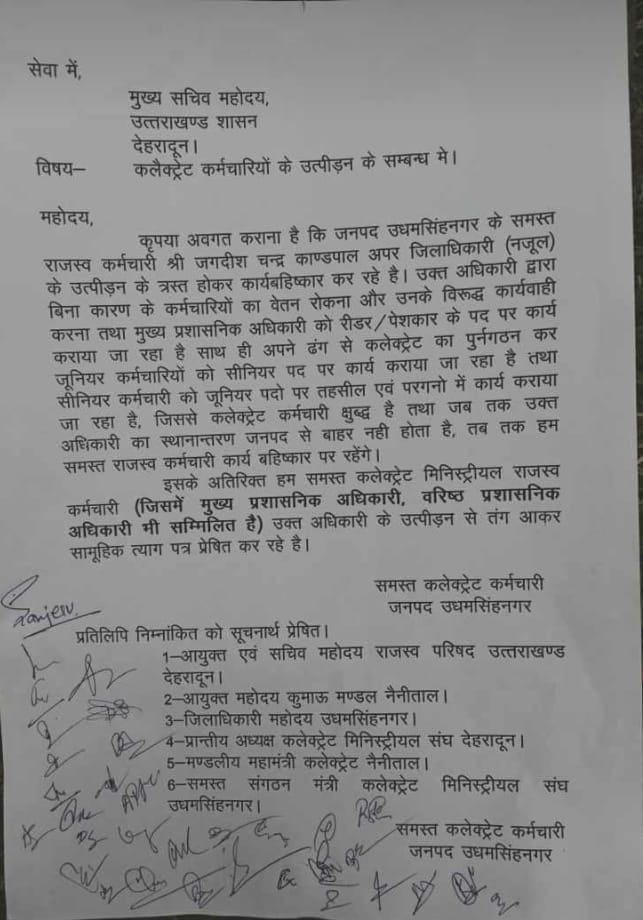 सेवा में,
मुख्य सचिव महोदय,
उत्तराखण्ड शासन
देहरादून।
विषय– कलैक्ट्रेट कर्मचारियों के उत्पीड़न के सम्बन्ध मे।
महोदय,
कृपया अवगत कराना है कि जनपद उधमसिंहनगर के समस्त
राजस्व कर्मचारी श्री जगदीश चन्द्र काण्डपाल अपर जिलाधिकारी (नजूल)
के उत्पीड़न के त्रस्त होकर कार्यबहिष्कार कर रहे है। उक्त अधिकारी द्वारा
बिना कारण के कर्मचारियों का वेतन रोकना और उनके विरूद्ध कार्यवाही
करना तथा मुख्य प्रशासनिक अधिकारी को रीडर/पेशकार के पद पर कार्य
कराया जा रहा है साथ ही अपने ढंग से कलेक्ट्रेट का पुर्नगठन कर
जूनियर कर्मचारियों को सीनियर पद पर कार्य कराया जा रहा है तथा
सीनियर कर्मचारी को जूनियर पदो पर तहसील एवं परगनो में कार्य कराया
जा रहा है, जिससे कलेक्ट्रेट कर्मचारी क्षुब्द्ध है तथा जब तक उक्त
अधिकारी का स्थानान्तरण जनपद से बाहर नही होता है, तब तक हम
समस्त राजस्व कर्मचारी कार्य बहिष्कार पर रहेंगे।
इसके अतिरिक्त हम समस्त कलेक्ट्रेट मिनिस्ट्रीयल राजस्व
कर्मचारी (जिसमें मुख्य प्रशासनिक अधिकारी, वरिष्ठ प्रशासनिक
अधिकारी भी सम्मिलित है) उक्त अधिकारी के उत्पीड़न से तंग आकर
सामूहिक त्याग पत्र प्रेषित कर रहे है।
समस्त कलेक्ट्रेट कर्मचारी
जनपद उधमसिंहनगर
Sanjeev
प्रतिलिपि निम्नांकित को सूचनार्थ प्रेषित।
1–आयुक्त एवं सचिव महोदय राजस्व परिषद उत्तराखण्ड
देहरादून।
2–आयुक्त महोदय कुमाऊ मण्डल नैनीताल।
3–जिलाधिकारी महोदय उधमसिंहनगर।
4–प्रान्तीय अध्यक्ष कलेक्ट्रेट मिनिस्ट्रीयल संघ देहरादून।
5–मण्डलीय महामंत्री कलेक्ट्रेट नैनीताल।
6–समस्त संगठन मंत्री कलेक्ट्रेट मिनिस्ट्रीयल संघ
उधमसिंहनगर।
समस्त कलेक्ट्रेट कर्मचारी
जनपद उधमसिंहनगर